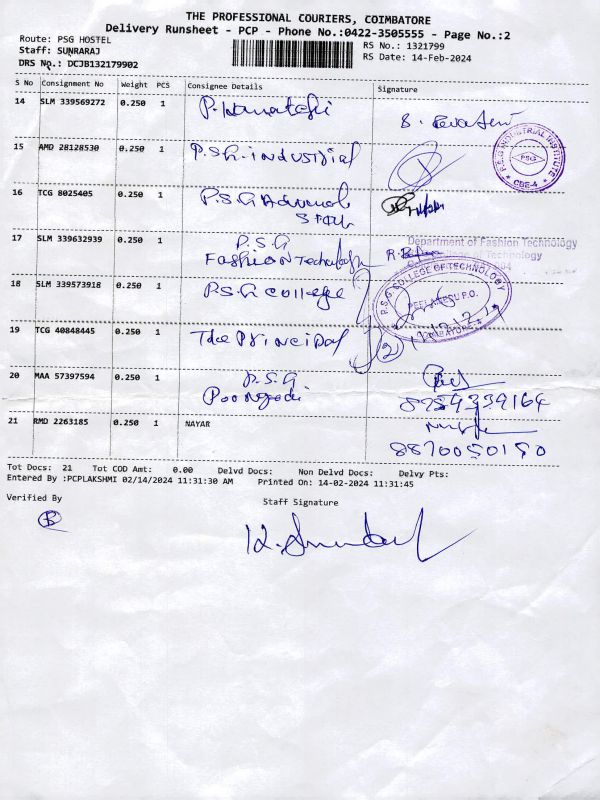 THE PROFESSIONAL COURIERS, COIMBATORE
Delivery Runsheet - PCP - Phone No.:0422-3505555 - Page No.:2
Route: PSG HOSTEL
RS No.: 1321799
Staff: SUNRARAJ
RS Date: 14-Feb-2024
DRS No.: DCJB132179902
S No Consignment No Weight PCS Consignee Details Signature
14 SLM 339569272 0.250 1
15 AMD 28128530 0.250 1 P.S.G. industrial
P.S.G INDUSTRIAL INSTITUTE
PSG
CBE-4
16 TCG 8025405 0.250 1 P.S.G
17 SLM 339632939 0.250 1 P.S.G
Fashion Technology
Department of Fashion Technology
of Technology
18 SLM 339573918 0.250 1 P.S.G college
P.S.G. COLLEGE OF TECHNOLOGY
PEELAMEDU P.O.
19 TCG 40848445 0.250 1 The Principal
20 MAA 57397594 0.250 1 P.S.G
Poongodi
8754339164
21 RMD 2263185 0.250 1 NAYAR
8870050150
Tot Docs: 21 Tot COD Amt: 0.00 Delvd Docs: Non Delvd Docs: Delvy Pts:
Entered By :PCPLAKSHMI 02/14/2024 11:31:30 AM Printed On: 14-02-2024 11:31:45
Verified By Staff Signature